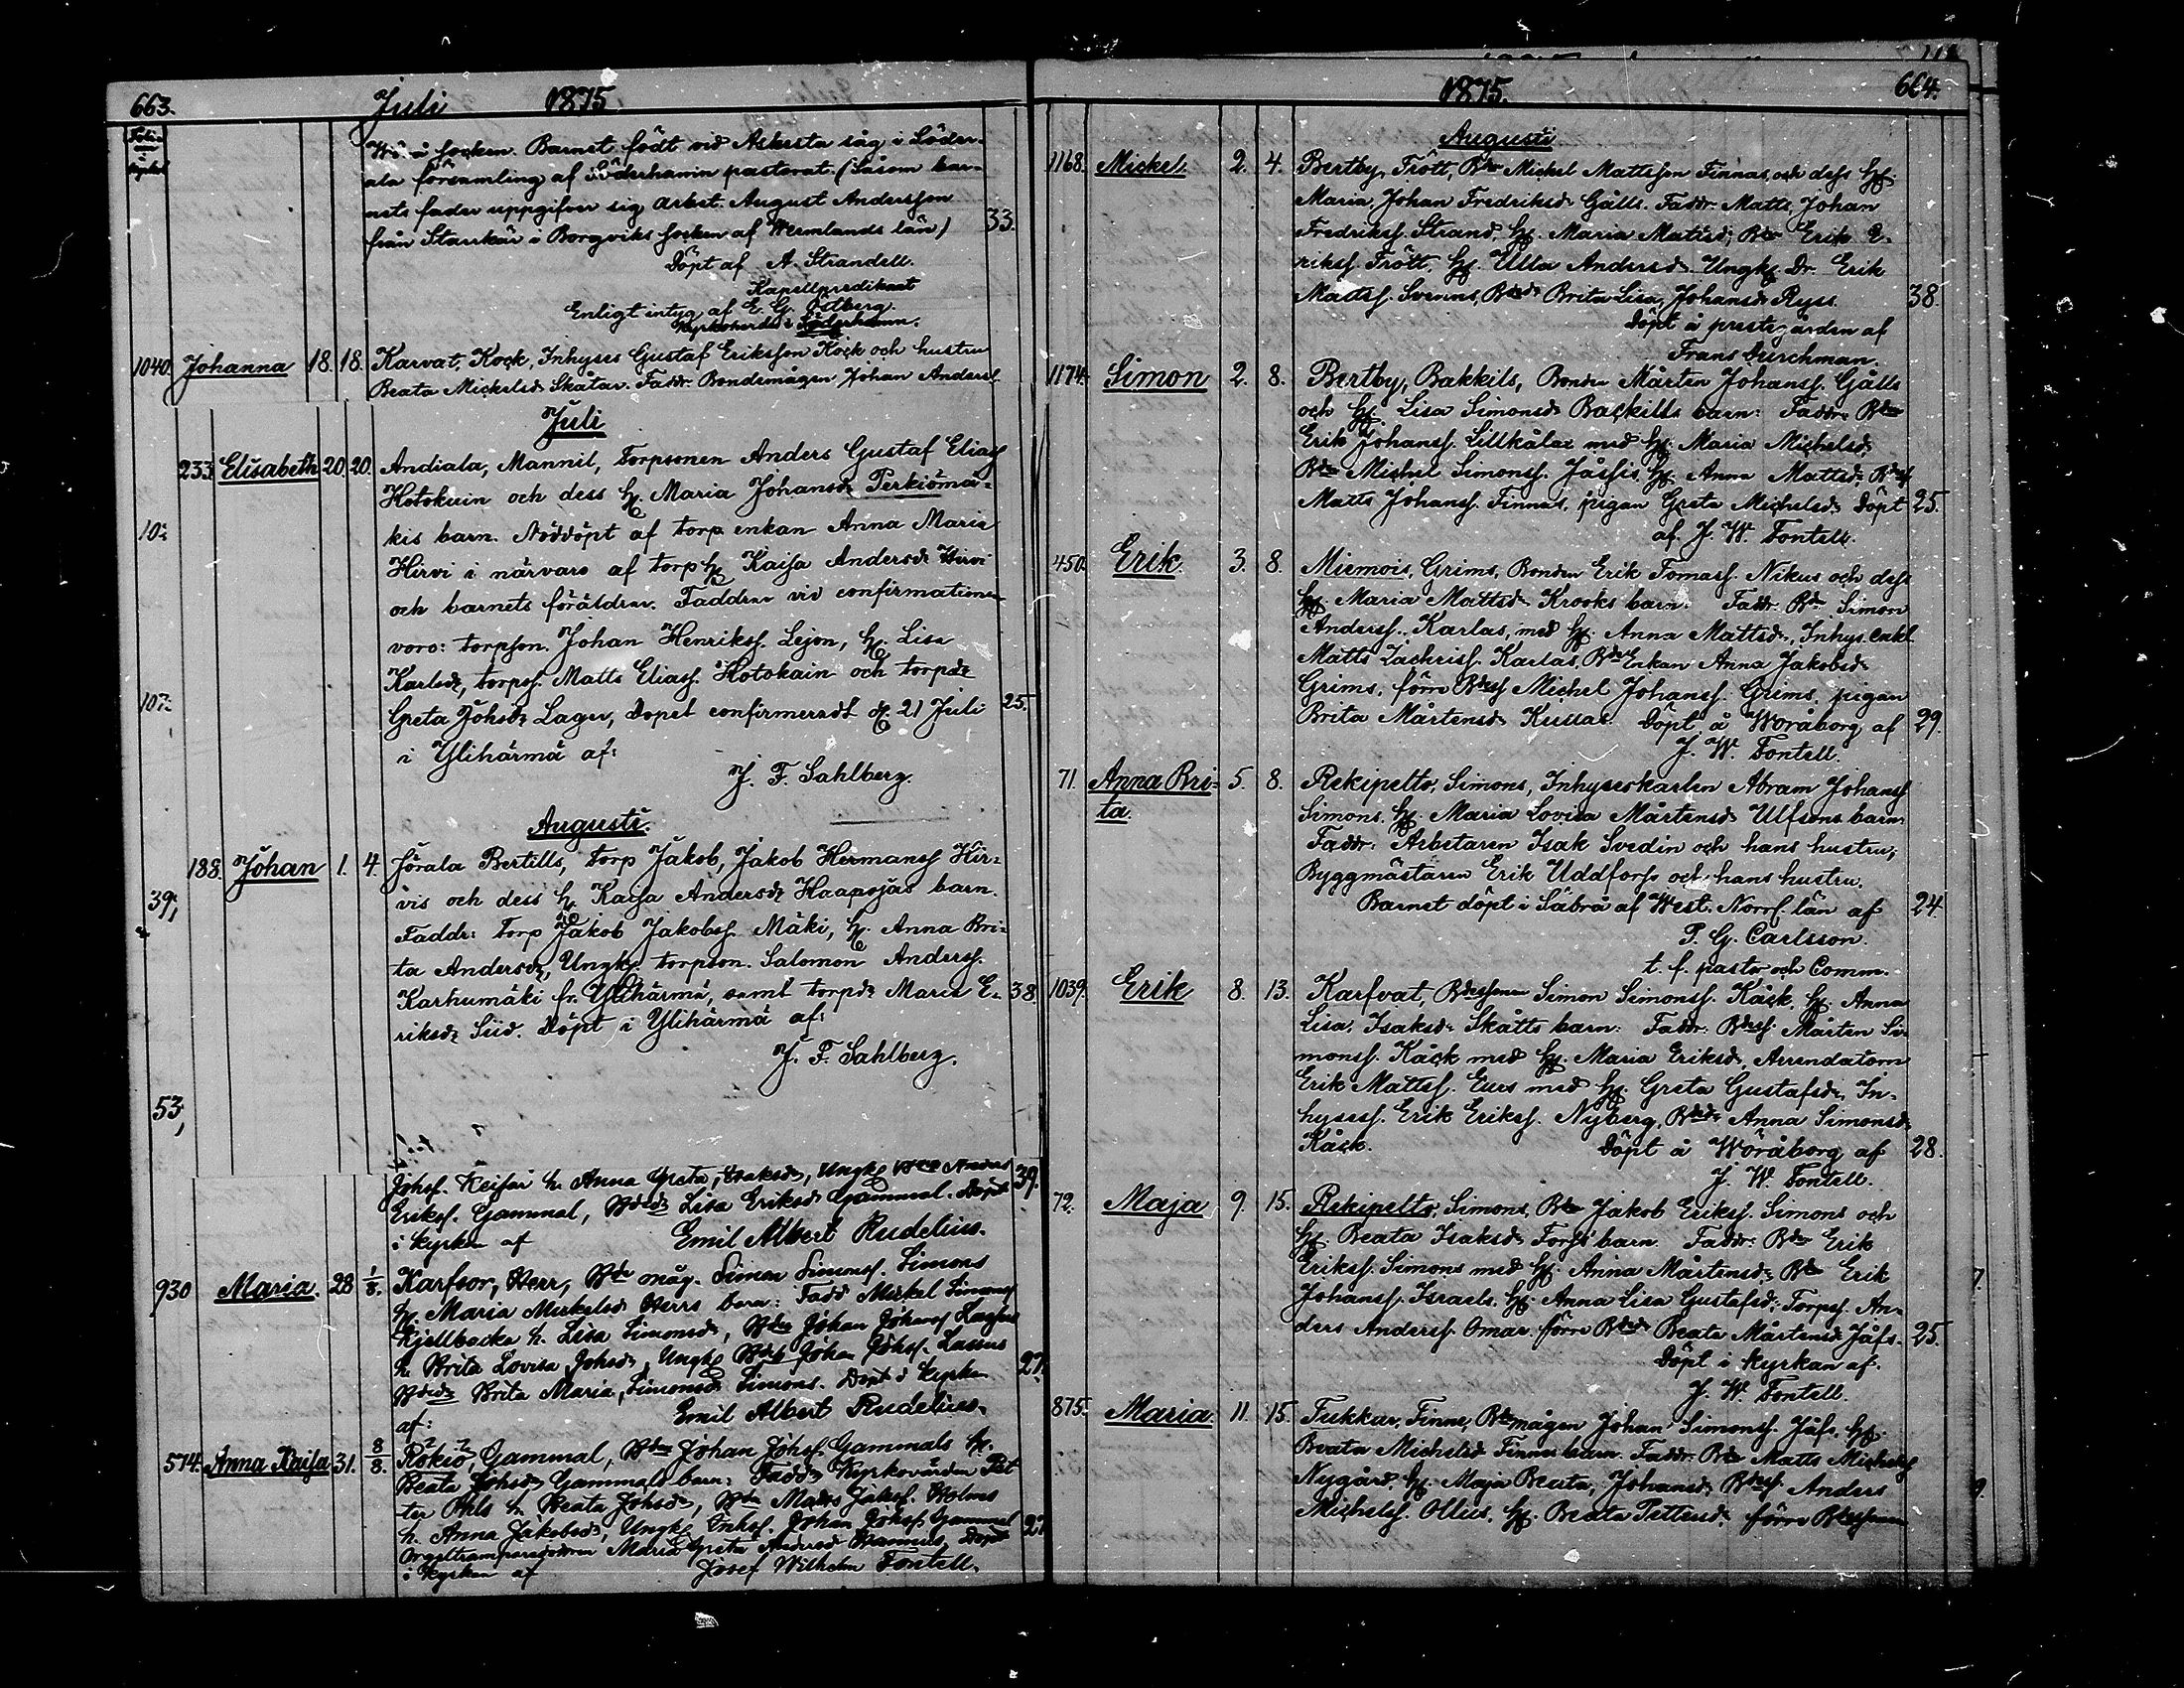 663. Juli 1875
Wörå socken. Barnet födt vid Askesta såg i Söder-
ala församling af Söderhamn pastorat. (Såsom bar-
nets fader uppgifver sig arbet. August Andersson
från Starrkärr i Borgviks socken af Wermlands län) 33.
Döpt af A. Strandell.
Kapellpredikant
Enligt intyg af E. G. Östberg.
Kyrkoherde i Söderhamn.
1040. Johanna 18. 18. Karvat, Kock, Inhyses Gustaf Eriksson Kock och hustru
Beata Mickelsdr Skåtar. Faddr. Bondemågen Johan Anderss.
Juli
233. Elisabeth 20. 20. Andiala, Mannil, torpsonen Anders Gustaf Eliass
Hotokain och dess H. Maria Johansdr Perkiömä-
kis barn. Nöddöpt af torp enkan Anna Maria
Hirvi i närvaro af torp H. Kaisa Andersdr Hirvi
och barnets föräldrar. Faddrar vid confirmationen
voro: torpson. Johan Henrikss. Lejon, H. Lisa
Karlsdr, torpss. Matts Eliass. Hotokain och torpdr
Greta Johsdr Lager, Dopet confirmeradt d. 21 Juli 25.
i Ylihärmä af:
J. F. Sahlberg.
Augusti.
188. Johan 1. 4. Jörala Bertills, torp Jakob, Jakob Hermanss Hir-
vis och dess H. Kaisa Andersdr Haapojas barn.
Faddr: Torp Jakob Jakobss. Mäki, H. Anna Bri-
ta Andersdr, Ungk. torpson. Salomon Anderss.
Karhumäki fr. Ylihärmä, samt torpdr Maria E- 38.
riksdr Siid. Döpt i Ylihärmä af:
J. F. Sahlberg.
Johss. Keisar h. Anna Greta, Isaksdr, Ungk Anders
Erikss. Gammal, Bdedr Lisa Eriksdr Gammal. Döpt 39.
i kyrkan af Emil Albert Rudelius.
930 Maria. 28 1/8. Karfsor, Herr, Bde måg. Simon Simonss. Simons
H. Maria Mickelsdr Herrs barn: Fadd Mickel Simonss
Kjellbacka h. Lisa Simonsdr, Bde Johan Johanss
h. Brita Lovisa Johsdr, Ungk Bdes Johan Johss. Lassus
Bdedr Brita Maria, Simonsdr Simons. Döpt i kyrkan 27.
af: Emil Albert Rudelius.
574. Anna Kaisa 31. 8/8. Rökiö, Gammal, Bde Johan Johss. Gammals H.
Beata Johsdr Gammals barn: Faddr Kyrkovärden Pet
ter h. Beata Johsdr, Bde Matts Jakss. Holms
h. Anna Jakobsdr, Ungk Inhss. Johan Johss Gammal 27
Orgeltramparedottren Maria Greta Andersdr Döpt
i kyrkan af Josef Wilhelm Fontell.
1875. 664.
Augusti
1168. Mickel 2. 4. Bertby, Trött, Bde Michel Mattsson Finnas, och dess H.
Maria, Johan Fredriksdr Gålls. Faddr. Matts, Johan
Fredrikss. Strand, H. Maria Mattsd; Bde Erik E-
rikss. Trött, H. Ulla Andersdr. Ungk. Dr. Erik
Mattss. Svenns, Bdedr Brita Lisa, Johansdr Ryss. 38.
Döpt å prestgården af
Frans Durchman.
1174. Simon 2. 8. Bertby, Bakkils, Bonden Mårten Johanss. Gålls
och H. Lisa Simonsdr Backills barn: Faddr. Bde
Erik Johanss. Lillkålar med H. Maria Michelsdr;
Bde Michel Simonss. H. Anna Mattsdr; Bdess
Matts Johanss. Finnas, pigan Greta Michelsdr Döpt 25.
af. J. W. Fontell.
450. Erik. 3. 8. Miemois, Grims, Bonden Erik Tomass. Nikus och dess
H. Maria Mattsdr Krooks barn: Faddr. Bde Simon
Anderss. Karlas, med H. Anna Mattsdr, Inhys. enkl.
Matts Zachriss. Karlas, Bde Enkan Anna Jakobsdr
Grims, förre Bdess Michel Johanss. Grims, pigan
Brita Mårtensdr Kussas. Döpt å Woråborg af 29.
J. W. Fontell.
71. Anna Bri- 5. 8. Rekipelto, Simons, Inhyseskarlen Abram Johanss
ta. Simons, H. Maria Lovisa Mårtensdr Ulfsons barn:
Faddr. Arbetaren Isak Svedin och hans hustru,
Byggmästaren Erik Uddfors och hans hustru.
Barnet döpt i Säbrå af West. Norrl. län af 24.
P. G. Carlsson.
t. f. pastor och Comm.
1039. Erik 8. 13. Karfvat, Bdessonen Simon Simonss. Käck, H. Anna
Lisa, Isaksdr Skåtts barn: Faddr. Bdess. Mårten Si-
monss. Käck med H. Maria Eriksdr, Arrendatorn
Erik Mattss. Eurs med H. Greta Gustafsdr, In-
hysess. Erik Erikss. Nyberg, Bdedr Anna Simonsdr
Käck. Döpt å Wöråborg af 28.
J. W. Fontell.
72. Maja 9. 15. Rekipelto, Simons, Bde Jakob Erikss. Simons och
H. Beata Isaksdr Forss barn. Faddr. Bde Erik
Erikss. Simons med H. Anna Mårtensdr Bde Erik
Johanss. Israels, H. Anna Lisa Gustafsdr; Torpss. An-
ders Anderss. Omar, förre Bdedr Beata Mårtensdr Jåfs. 25.
Döpt i kyrkan af.
J. W. Fontell.
875. Maria. 11. 15. Tukkur, Finne, Bdemågen Johan Simonss. Jåfs, H.
Beata Michelsdr Finnes barn. Faddr. Bde Matts Michelss
Nygård, H. Maja Beata, Johansdr Bdess. Anders
Michelss. Ollus, H. Beata Pettersdr; förre Bdessonen